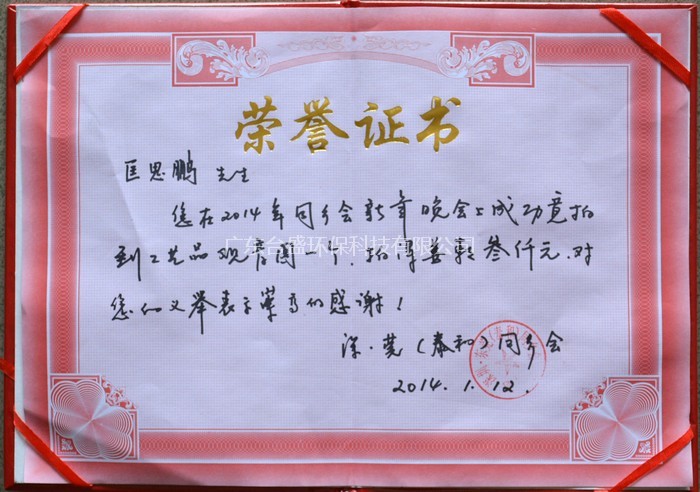 荣誉证书
匡思鹏 先生
您在2014年同乡会新年晚会上成功竞拍
到工艺品观音图一个,拍得善款叁仟元.对
您的义举表示崇高的感谢!
深·莞(泰和)同乡会
2014.1.12.
广东台盛环保科技有限公司